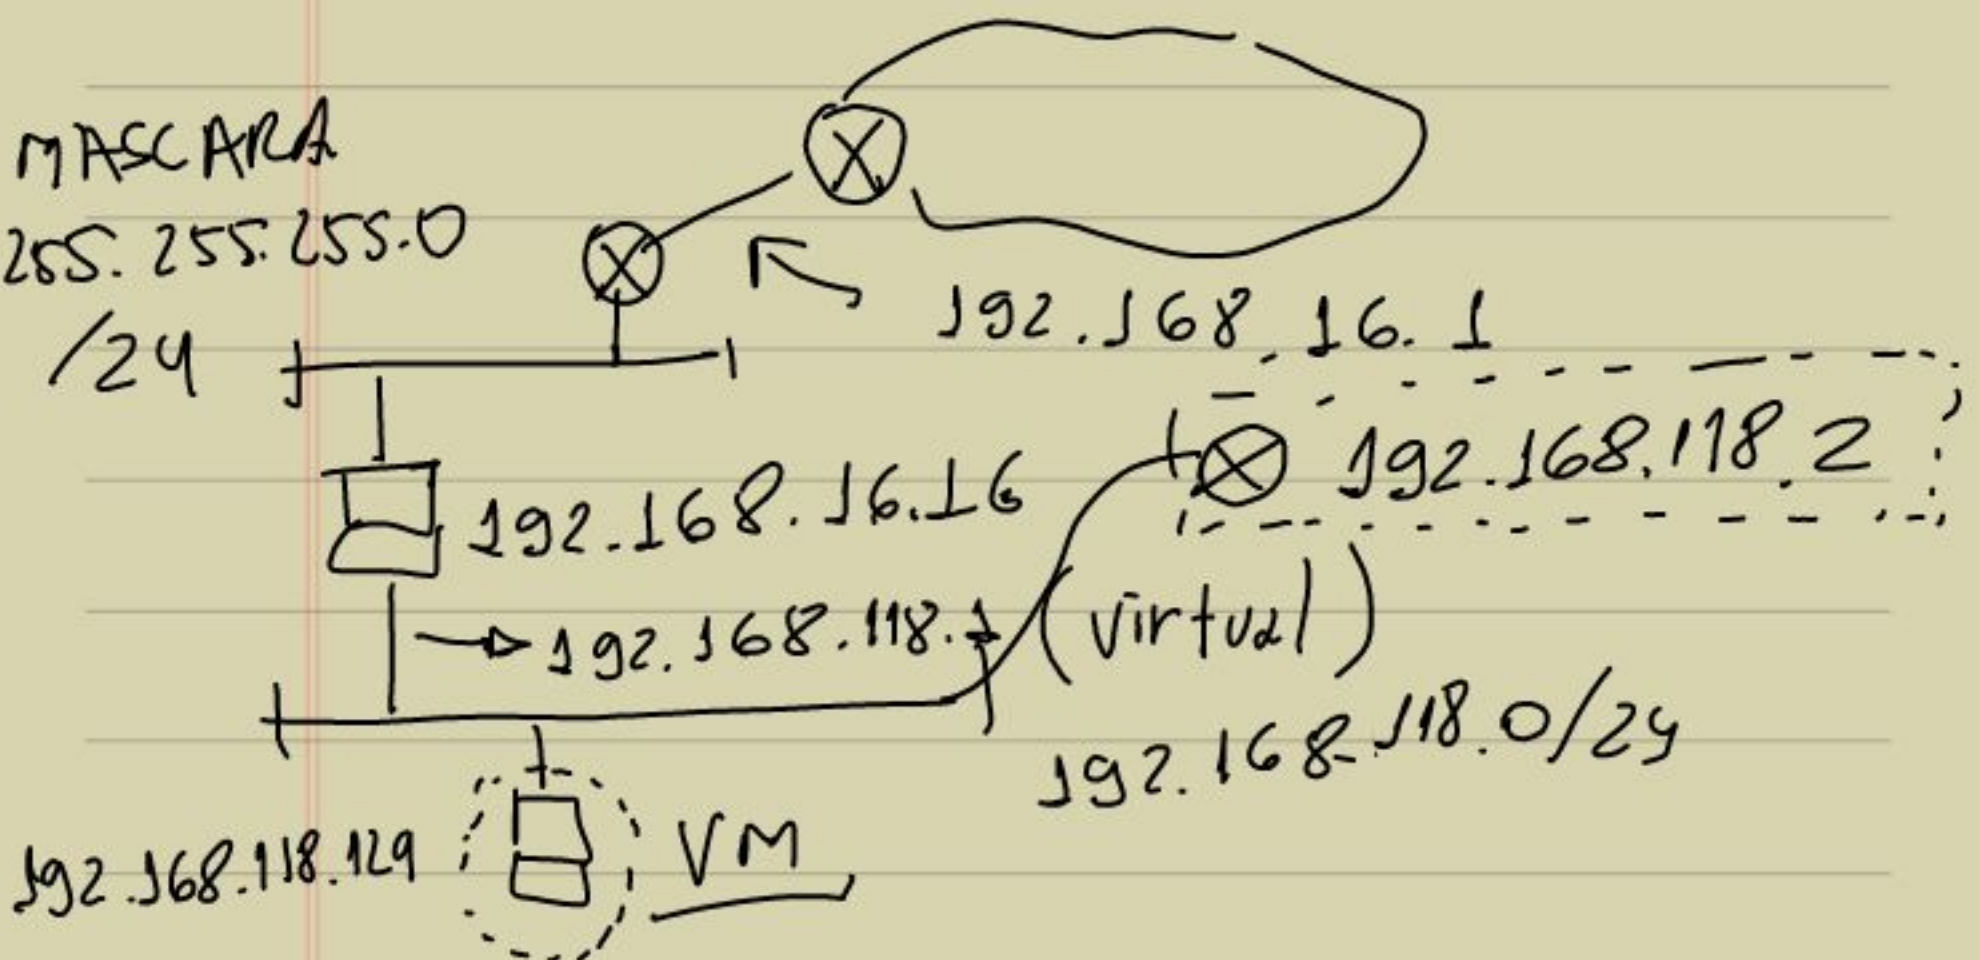 MASCARA
255.255.255.0
/24
192.168.16.1
192.168.118.2
192.168.16.16
(virtual)
192.168.118.1
192.168.118.0/24
192.168.118.129
VM